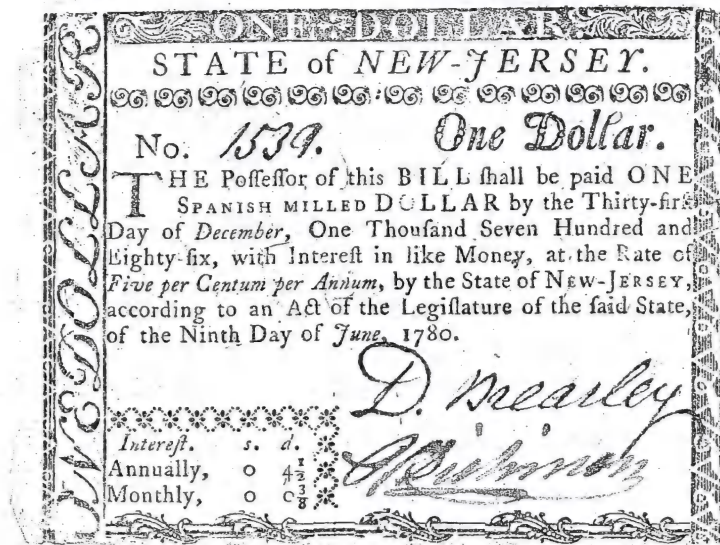 ONE DOLLAR
STATE of NEW-JERSEY.
No. 1539. One Dollar.
THE Poſſeſſor of this BILL ſhall be paid ONE
SPANISH MILLED DOLLAR by the Thirty-firſt
Day of December, One Thouſand Seven Hundred and
Eighty-ſix, with Intereſt in like Money, at the Rate of
Five per Centum per Annum, by the State of NEW-JERSEY,
according to an Act of the Legiſlature of the ſaid State,
of the Ninth Day of June, 1780.
D. Brearley
Intereſt. s. d.
Annually, 0 4½
Monthly, 0 0⅜
ONE DOLLAR